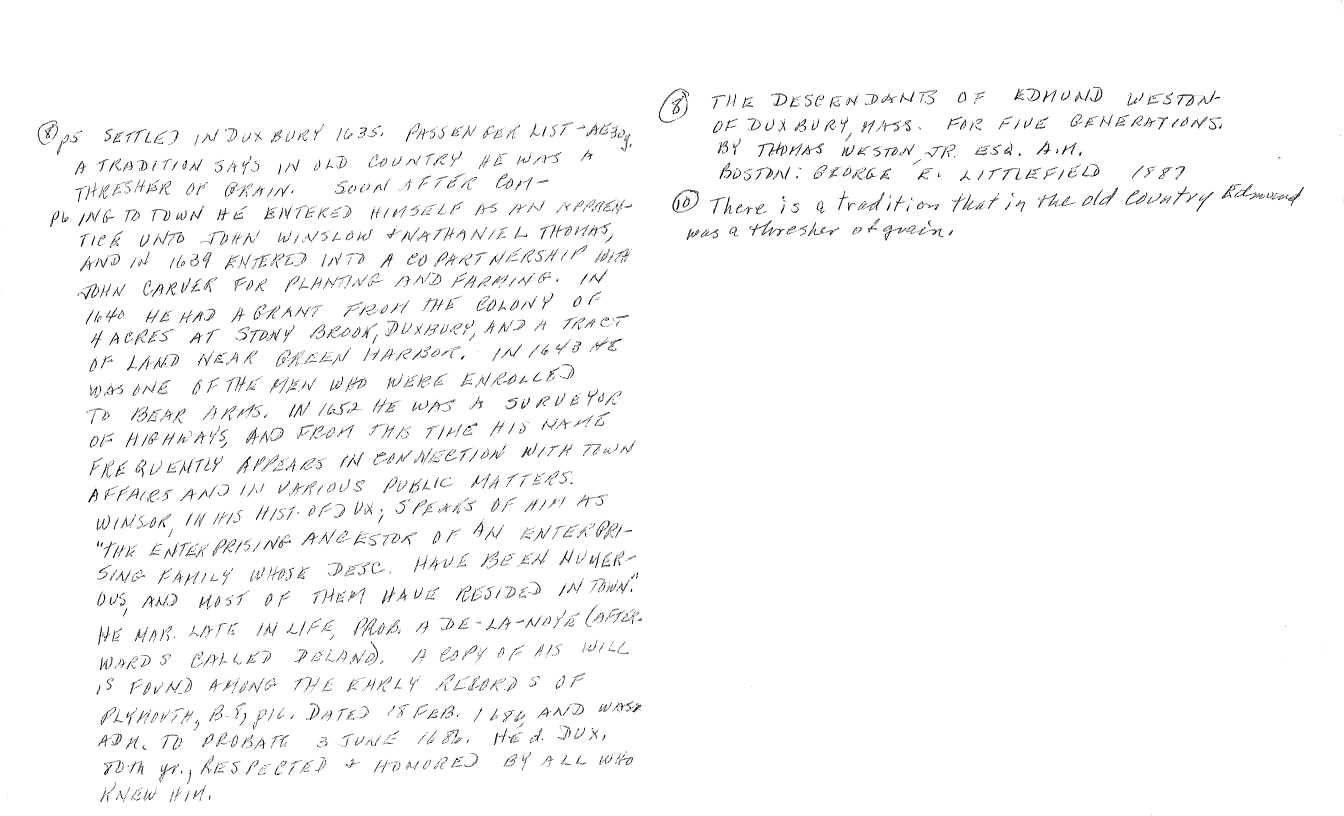 ⑧ p5 SETTLED IN DUXBURY 1635. PASSENGER LIST - AE 30y.
A TRADITION SAYS IN OLD COUNTRY HE WAS A
THRESHER OF GRAIN. SOON AFTER COM-
p6 ING TO TOWN HE ENTERED HIMSELF AS AN APPREN-
TICE UNTO JOHN WINSLOW & NATHANIEL THOMAS,
AND IN 1639 ENTERED INTO A COPARTNERSHIP WITH
JOHN CARVER FOR PLANTING AND FARMING. IN
1640 HE HAD A GRANT FROM THE COLONY OF
4 ACRES AT STONY BROOK, DUXBURY, AND A TRACT
OF LAND NEAR GREEN HARBOR. IN 1643 HE
WAS ONE OF THE MEN WHO WERE ENROLLED
TO BEAR ARMS. IN 1652 HE WAS A SURVEYOR
OF HIGHWAYS, AND FROM THIS TIME HIS NAME
FREQUENTLY APPEARS IN CONNECTION WITH TOWN
AFFAIRS AND IN VARIOUS PUBLIC MATTERS.
WINSOR, IN HIS HIST. OF DUX; SPEAKS OF HIM AS
"THE ENTERPRISING ANCESTOR OF AN ENTERPRI-
SING FAMILY WHOSE DESC. HAVE BEEN NUMER-
OUS, AND MOST OF THEM HAVE RESIDED IN TOWN."
HE MAR. LATE IN LIFE, PROB. A DE-LA-NOYE (AFTER-
WARDS CALLED DELANO). A COPY OF HIS WILL
IS FOUND AMONG THE EARLY RECORDS OF
PLYMOUTH, B-8, p16. DATED 18 FEB. 1686, AND WAS
ADM. TO PROBATE 3 JUNE 1686. HE d. DUX,
80th yr., RESPECTED & HONORED BY ALL WHO
KNEW HIM.
⑧ THE DESCENDANTS OF EDMUND WESTON
OF DUXBURY, MASS. FOR FIVE GENERATIONS.
BY THOMAS WESTON, JR. ESQ. A.M.
BOSTON: GEORGE E. LITTLEFIELD 1887
⑩ There is a tradition that in the old country Edmund
was a thresher of grain.